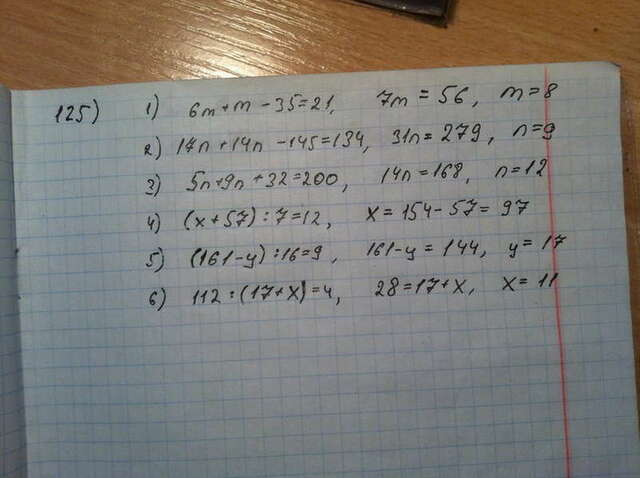 125) 1) 6m+m-35=21, 7m=56, m=8
2) 17n+14n-145=134, 31n=279, n=9
3) 5n+9n+32=200, 14n=168, n=12
4) (x+57):7=12, x=154-57=97
5) (161-y):16=9, 161-y=144, y=17
6) 112:(17+x)=4, 28=17+x, x=11